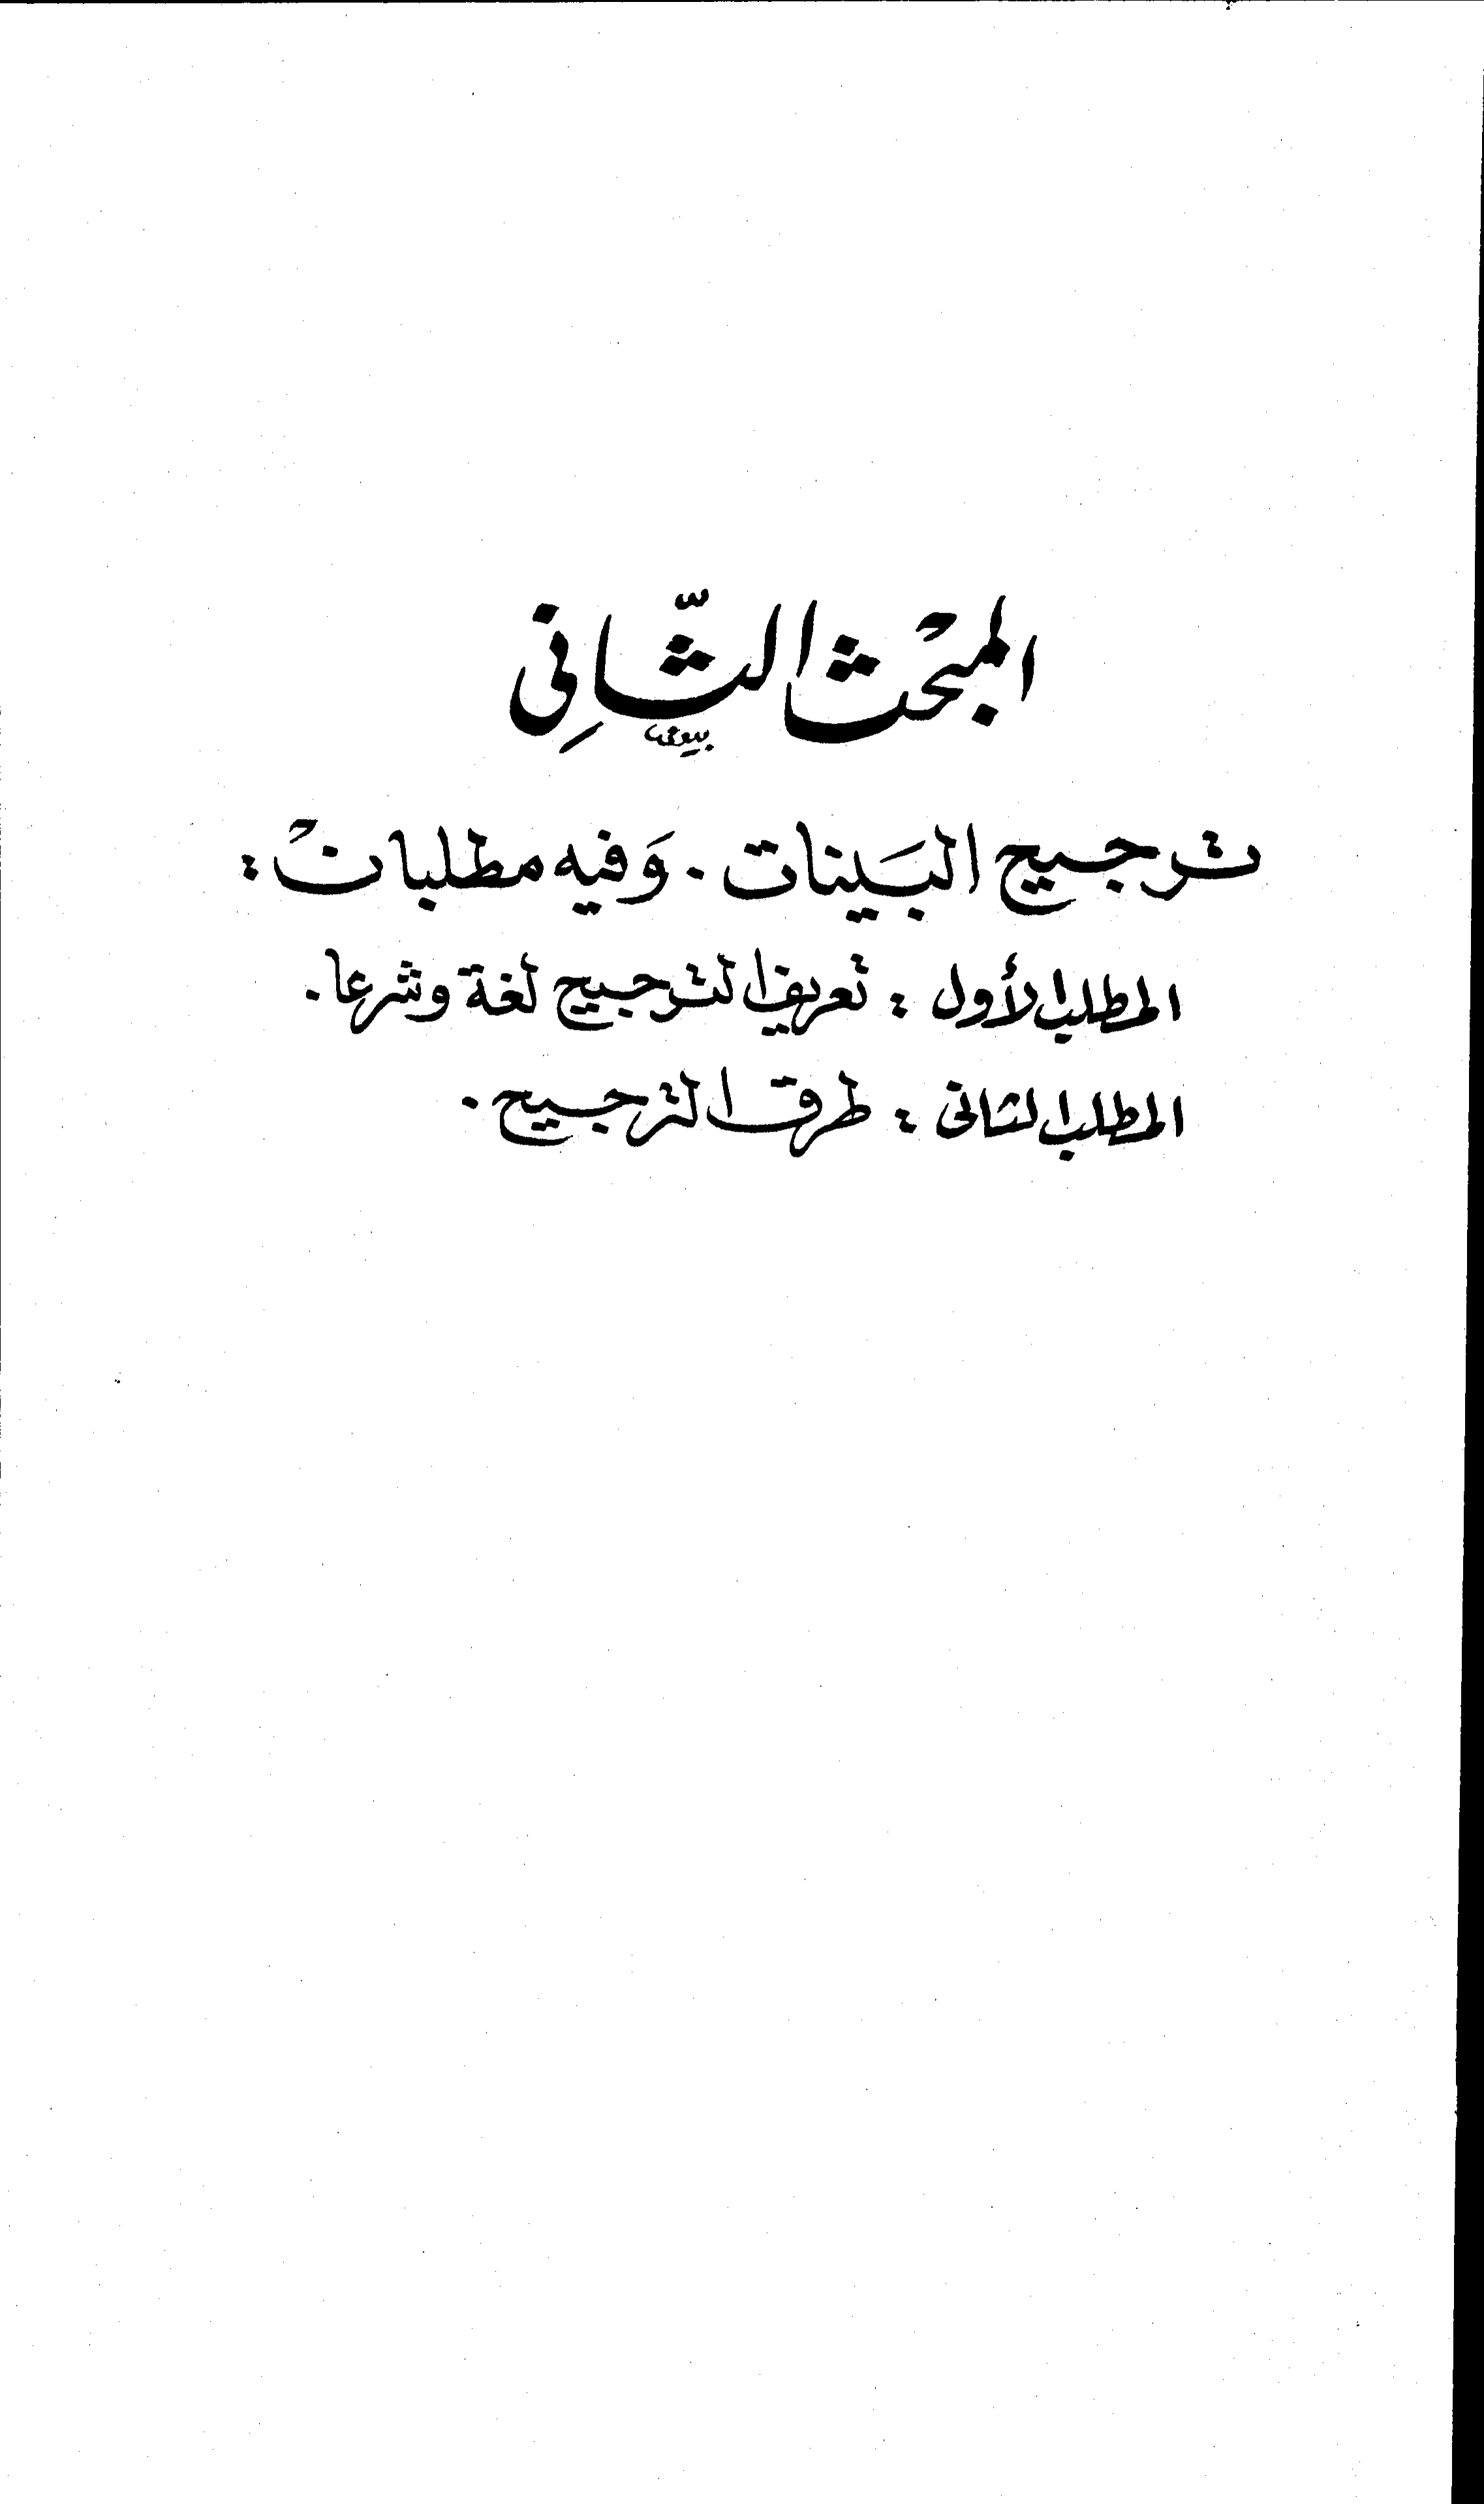 المبحَث الثّانِي
ترجيح البَينات . وَفيه مطلبانَ :
المطلب الأول : تعريف الترجيح لغة وشرعا .
المطلب الثانى : طرق الترجيح .